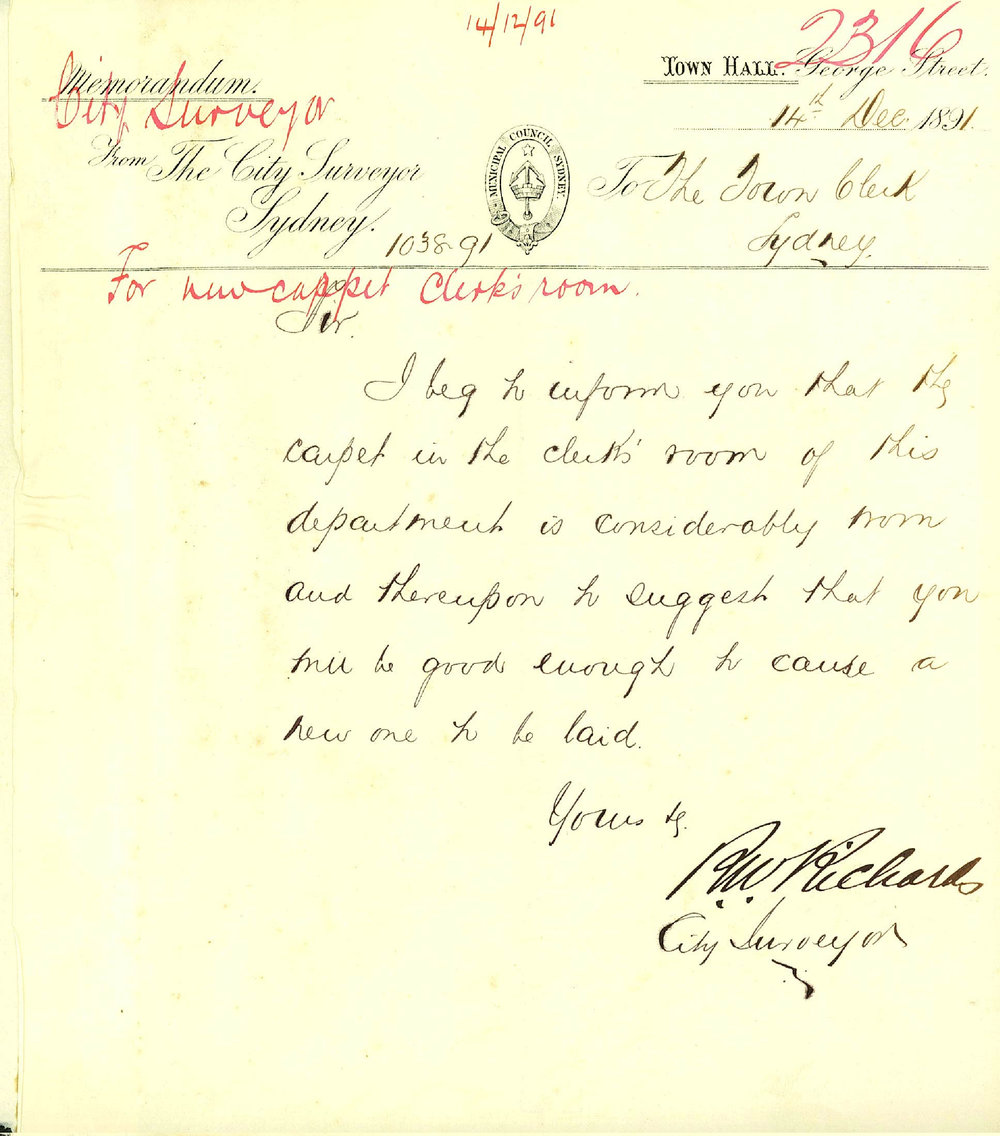 14/12/91
2316
Memorandum.
TOWN HALL. George Street.
City Surveyor
14th Dec 1891.
From The City Surveyor
Sydney.
MUNICIPAL COUNCIL SYDNEY.
To The Town Clerk
Sydney.
1038-91
For new carpet Clerk's room.
Sir.
I beg to inform you that the
carpet in the clerk's room of this
department is considerably worn
and thereupon to suggest that you
will be good enough to cause a
new one to be laid.
Yours &c.
R.W. Richards
City Surveyor